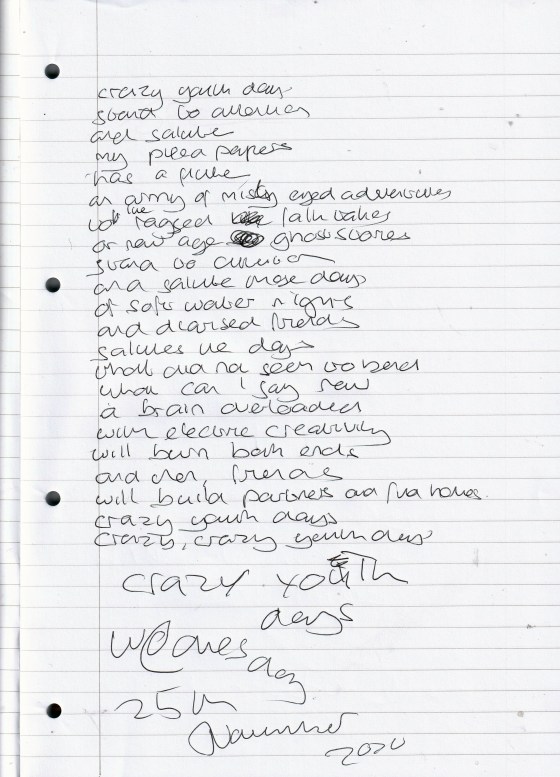 crazy youth days
stand to attention
and salute
my pizza papers
has a flute
an army of misty eyed adventures
not the ragged folk tales
or new age ghost stories
stand to attention
and salute those days
of soft water nights
and diarised friends
salutes the days
that did not seem to bend
what can I say new
a brain overloaded
with electric creativity
will burn both ends
and then, friends
will build partners and homes
crazy youth days
crazy, crazy youth days
crazy youth
days
Wednes
day
25th
November
2020